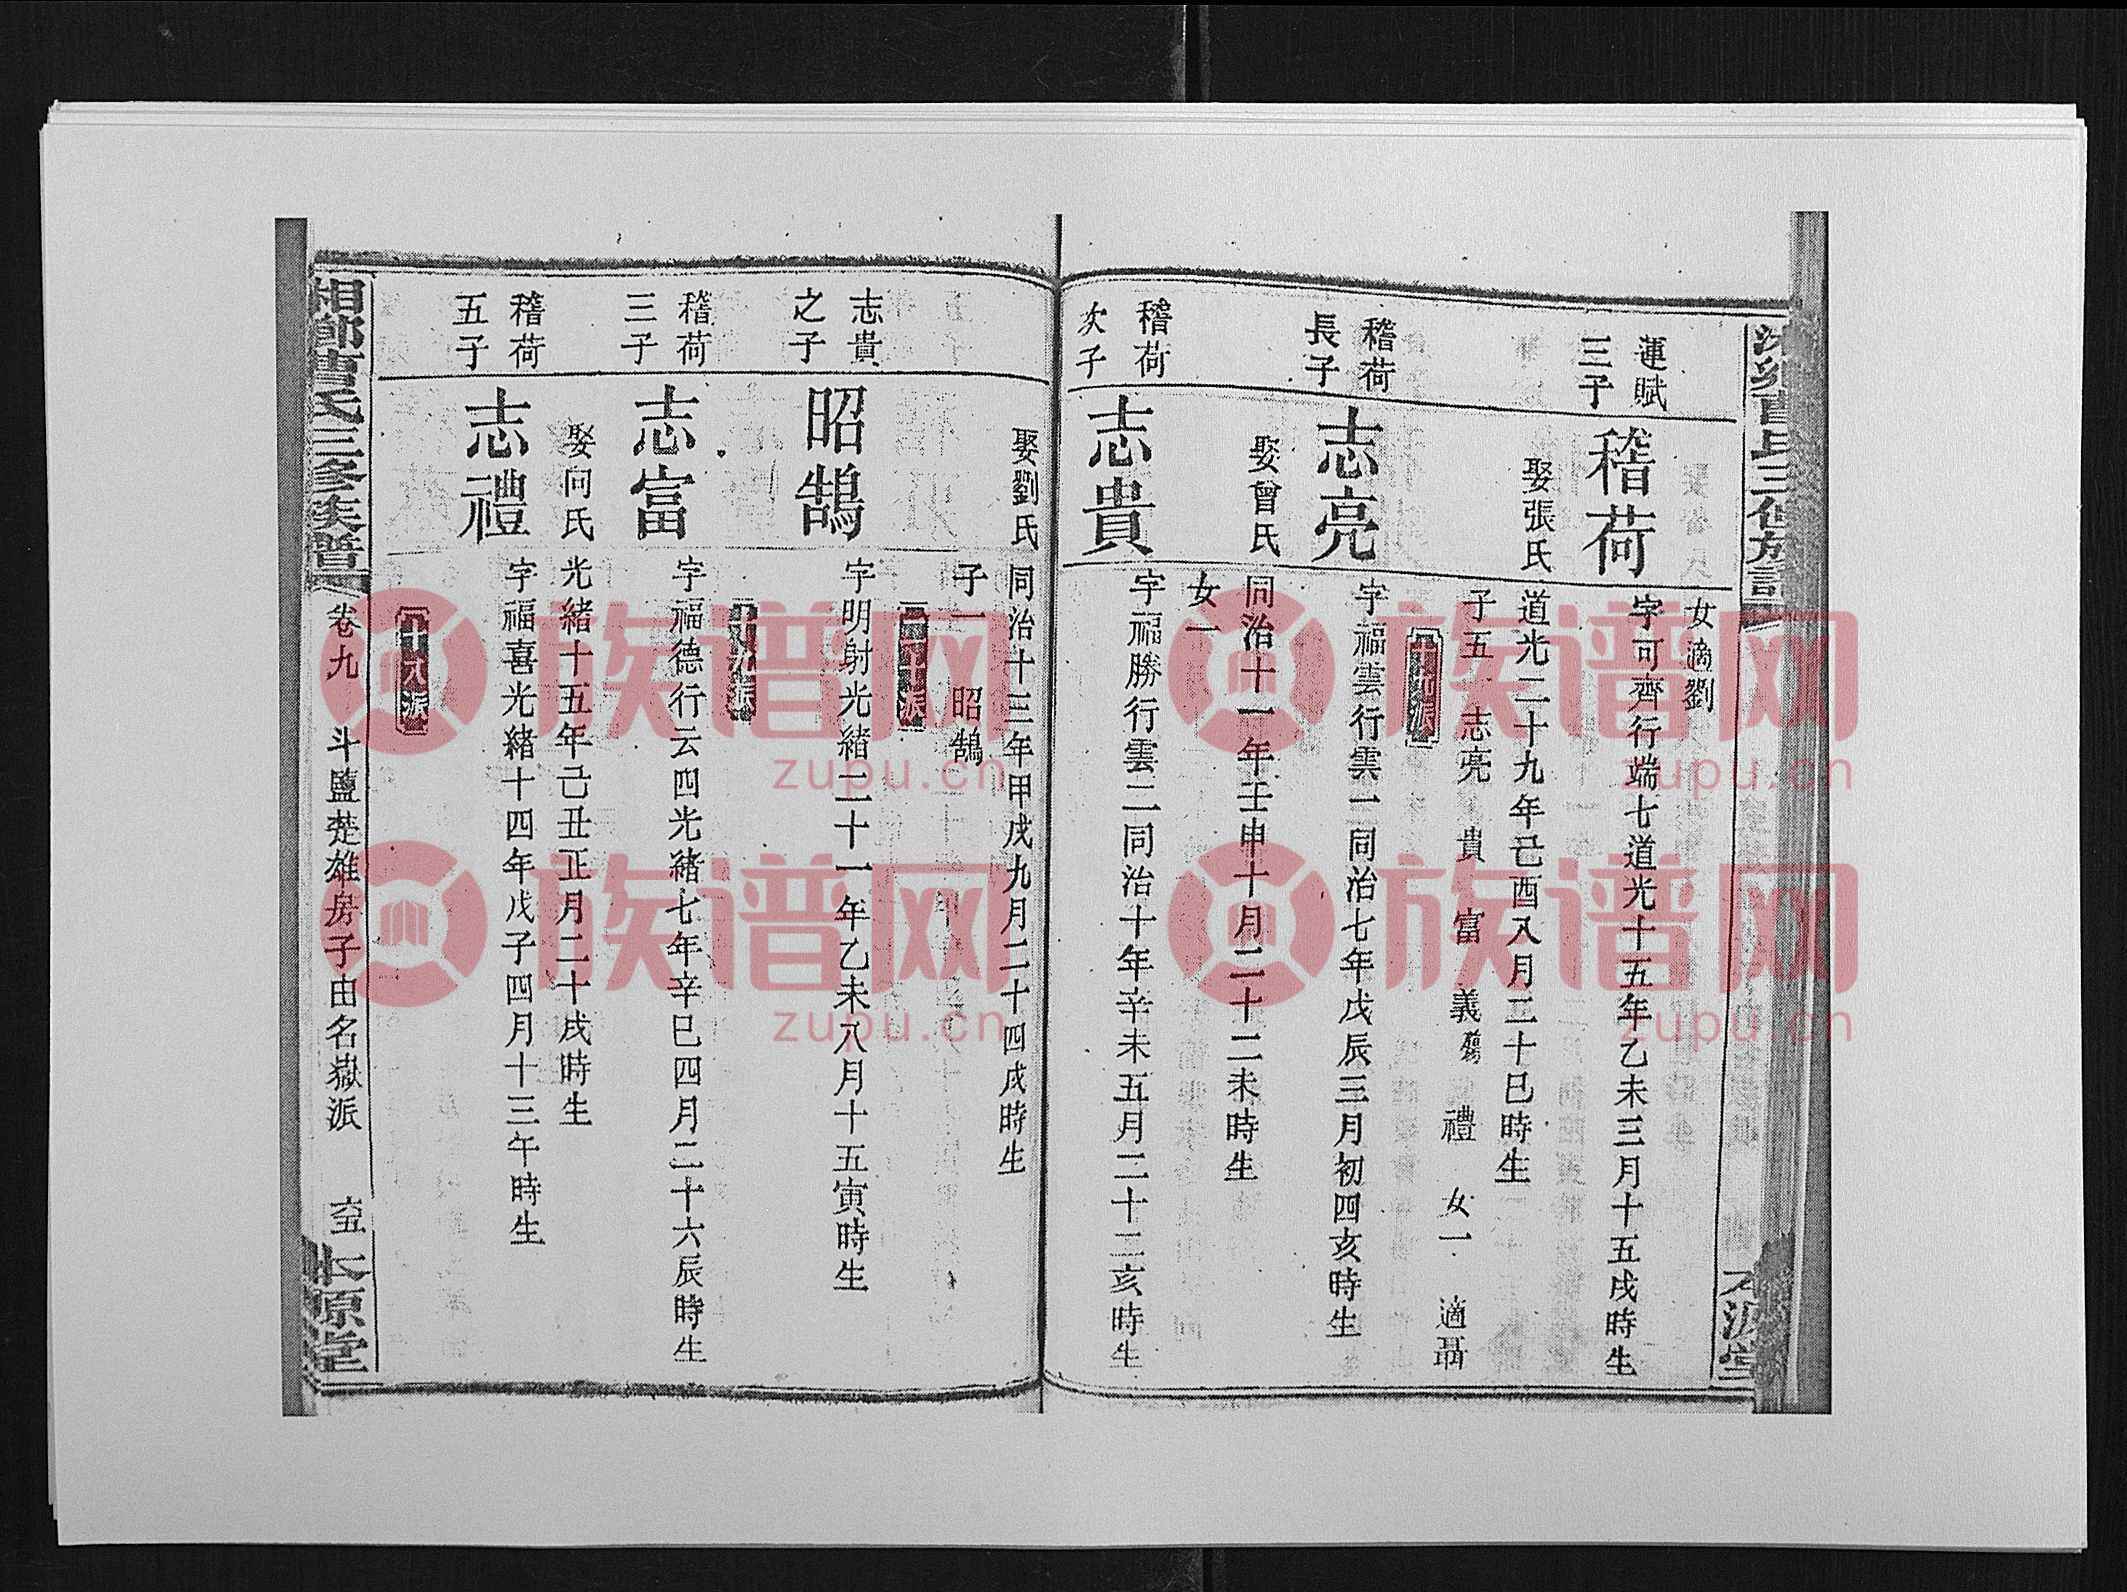 女適劉
運賦
三子
稽荷
字可齊行端七道光十五年乙未三月十五戌時生
娶張氏
道光二十九年己酉八月二十巳時生
子五 志亮 貴 富 義殤 禮 女一 適聶
十九派
稽荷
長子
志亮
字福雲行雲一同治七年戊辰三月初四亥時生
娶曾氏
同治十一年壬申十月二十二未時生
女一
稽荷
次子
志貴
字福勝行雲二同治十年辛未五月二十二亥時生
娶劉氏
同治十三年甲戌九月二十四戌時生
子一 昭鵠
二十派
志貴
之子
昭鵠
字明射光緒二十一年乙未八月十五寅時生
十九派
稽荷
三子
志富
字福德行云四光緒七年辛巳四月二十六辰時生
娶向氏
光緒十五年己丑正月二十戌時生
稽荷
五子
志禮
字福喜光緒十四年戊子四月十三午時生
十八派
湘鄉曹氏三修族譜 卷九 斗鹽楚雄房子由名嶽派 本源堂
族谱网
zupu.cn
族谱网
zupu.cn
族谱网
zupu.cn
族谱网
zupu.cn